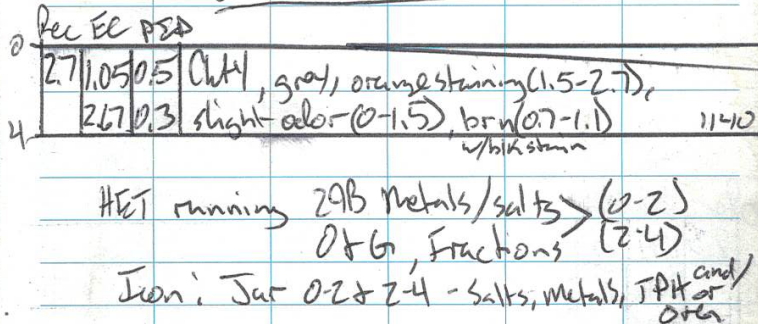 Rec EC PID
0
2.7 1.05 0.5 CH4, gray, orange staining (1.5-2.7),
2.67 0.3 slight odor (0-1.5), brn (0.7-1.1) 1140
4 w/blk stain
HET running 29B Metals/salts > (0-2)
O+G, Fractions (2-4)
Icon: Jar 0-2 + 2-4 - Salts, Metals, TPH and/
or